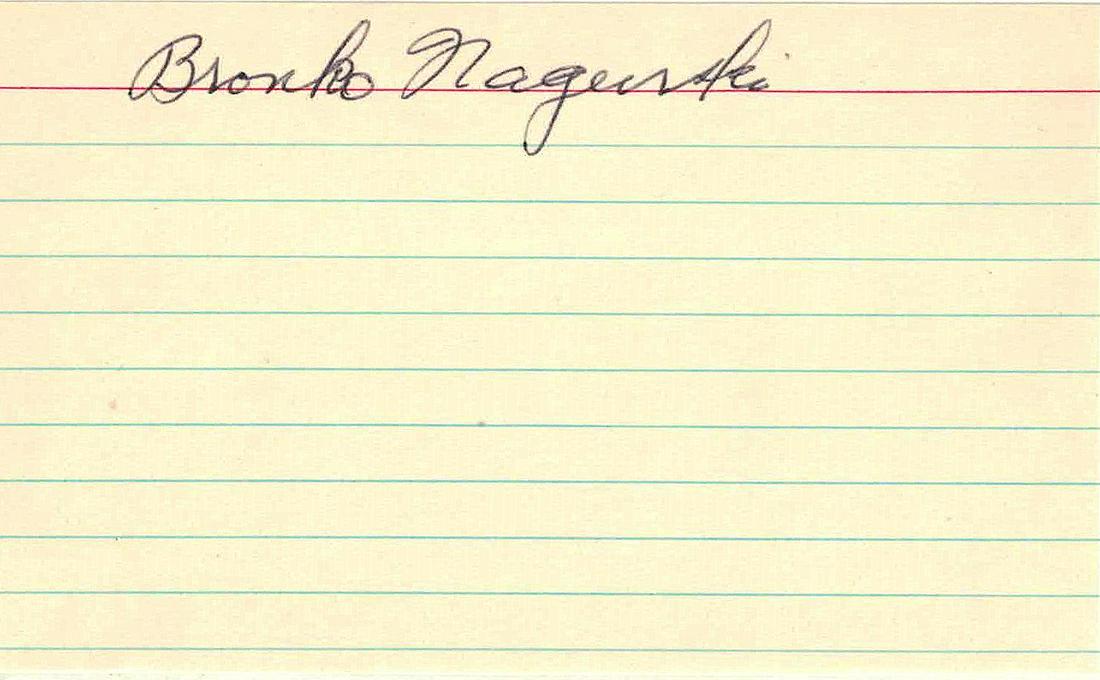 Bronko Nagurski